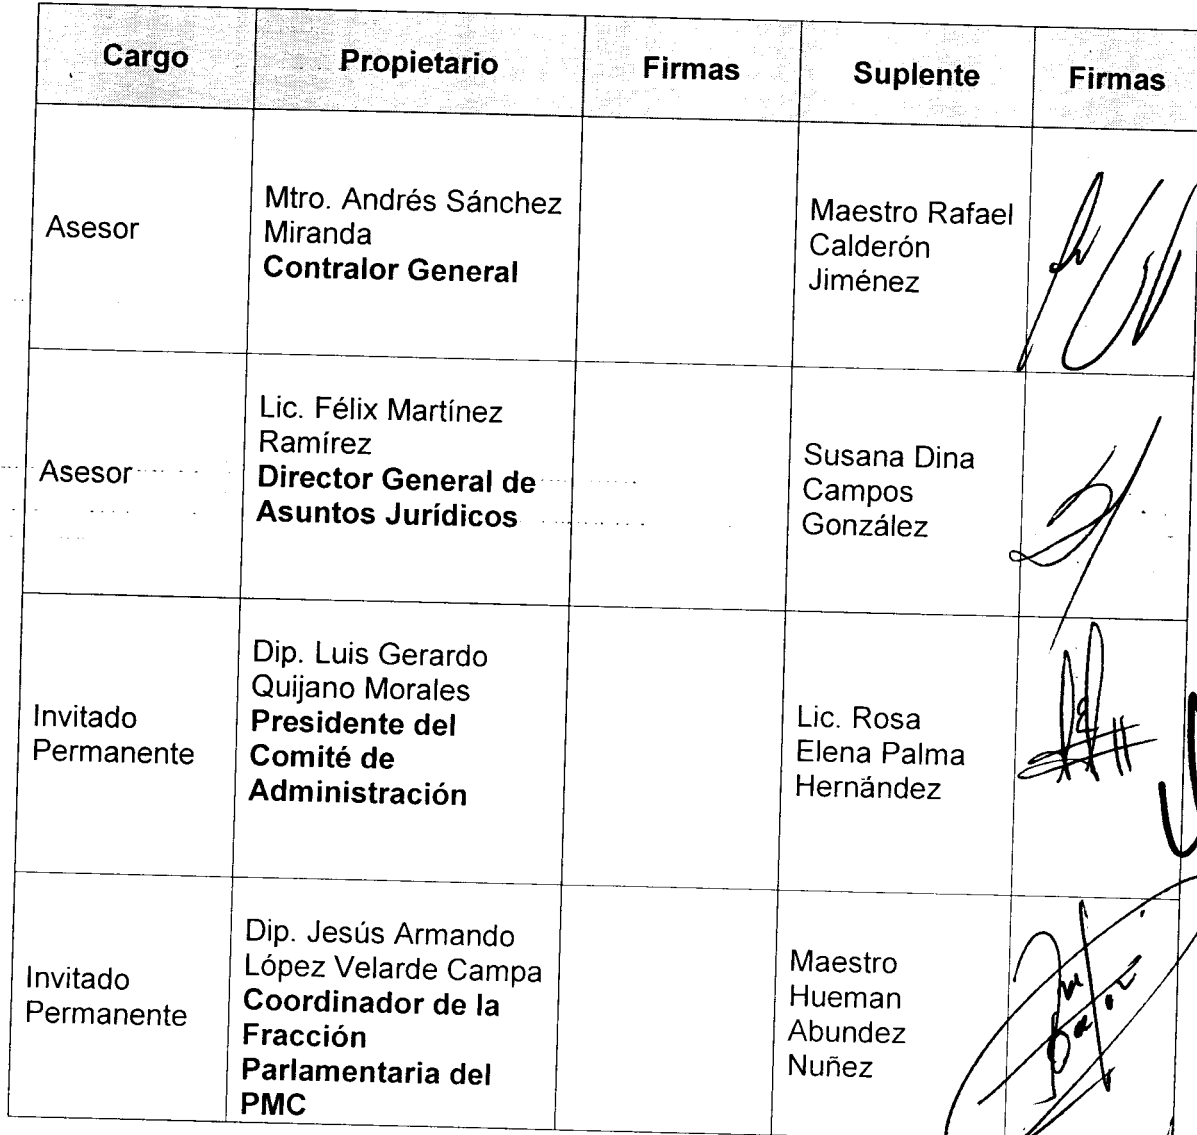 Cargo
Propietario
Firmas
Suplente
Firmas
Asesor
Mtro. Andrés Sánchez
Miranda
Contralor General
Maestro Rafael
Calderón
Jiménez
Asesor
Lic. Félix Martínez
Ramírez
Director General de
Asuntos Jurídicos
Susana Dina
Campos
González
Invitado
Permanente
Dip. Luis Gerardo
Quijano Morales
Presidente del
Comité de
Administración
Lic. Rosa
Elena Palma
Hernández
Invitado
Permanente
Dip. Jesús Armando
López Velarde Campa
Coordinador de la
Fracción
Parlamentaria del
PMC
Maestro
Hueman
Abundez
Nuñez